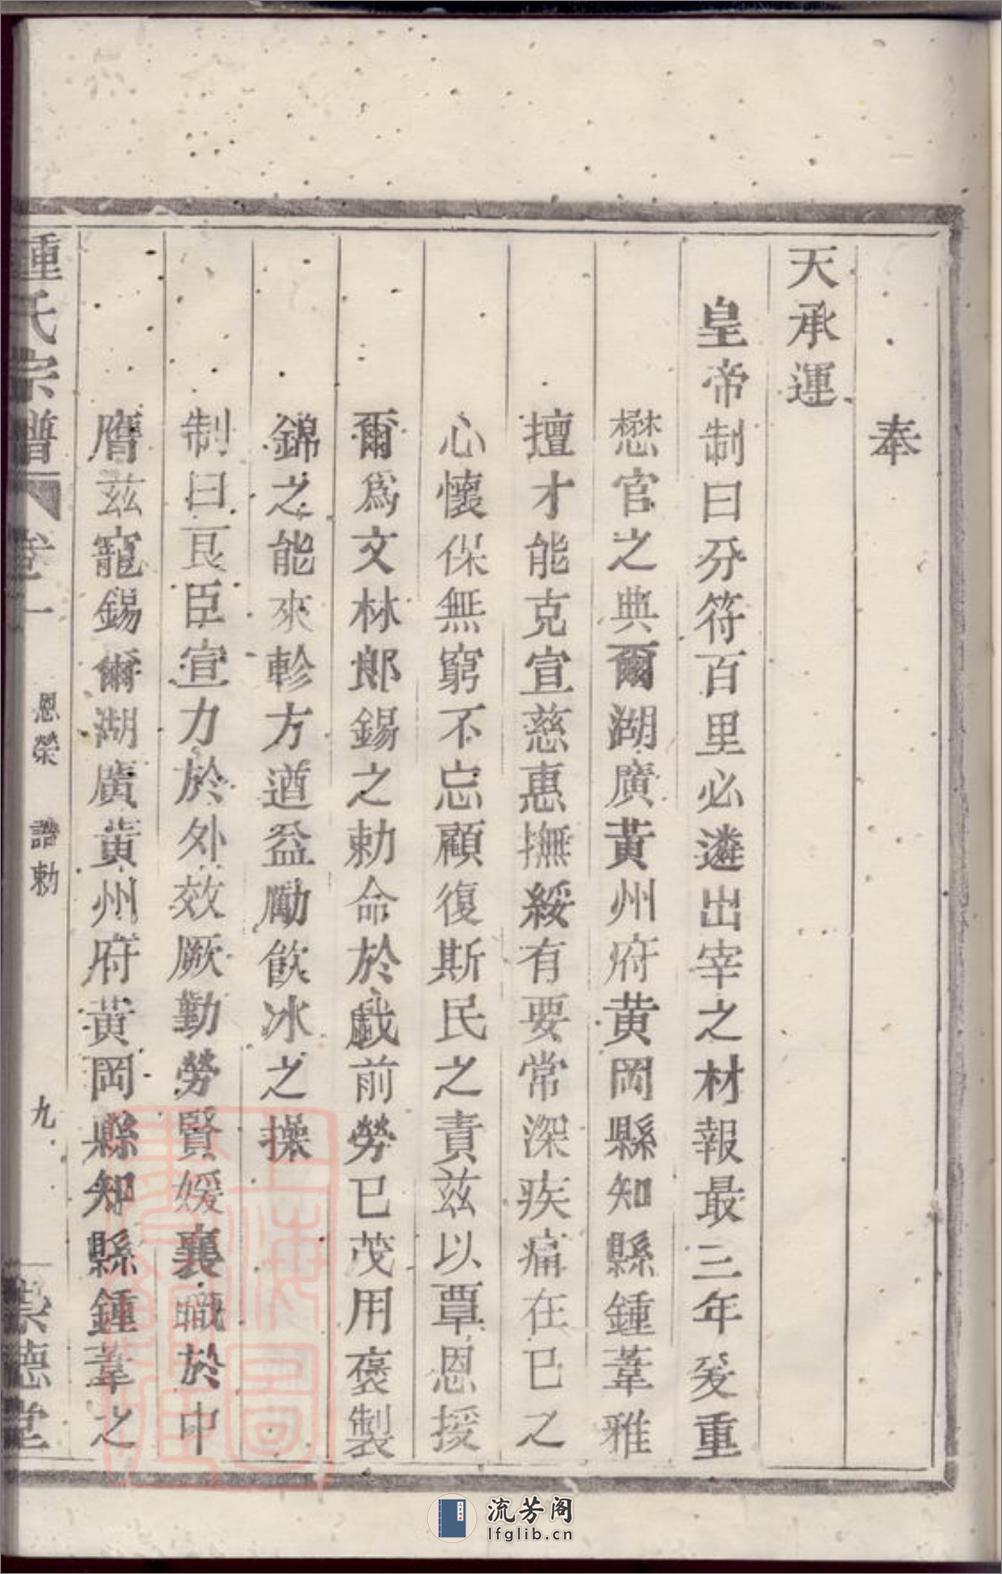 奉
天承運
皇帝制曰分符百里必遴出宰之材報最三年爰重
懋官之典爾湖廣黃州府黃岡縣知縣鍾葦雅
擅才能克宣慈惠撫綏有要常深疾痛在已之
心懷保無窮不忘顧復斯民之責茲以覃恩授
爾爲文林郎錫之勅命於戲前勞已茂用褒製
錦之能來軫方遒益勵飲冰之操
制曰良臣宣力於外效厥勤勞賢媛襄職於中
膺茲寵錫爾湖廣黃州府黃岡縣知縣鍾葦之
鍾氏宗譜 卷一 恩榮 誥勅 九 崇德堂
流芳阁
lfglib.cn